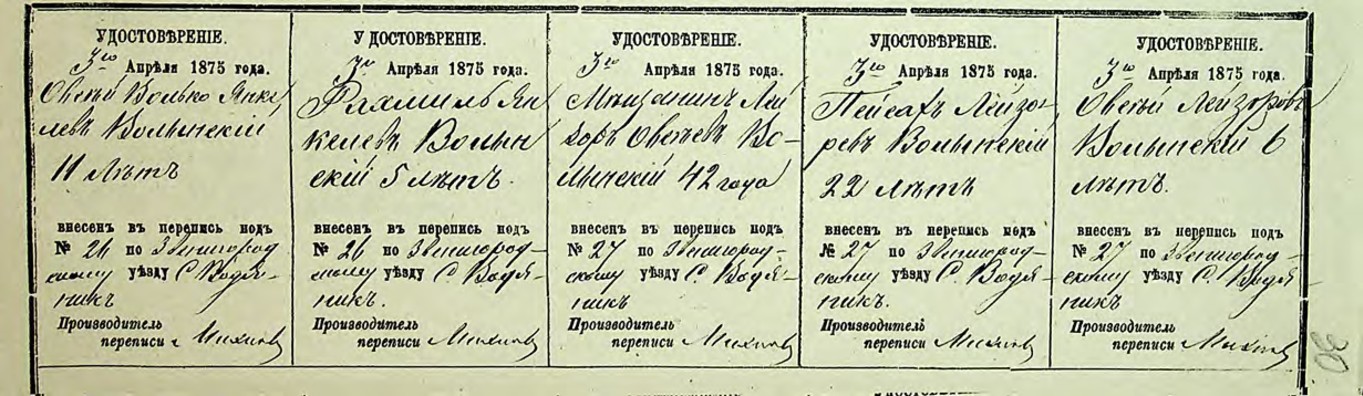 УДОСТОВѢРЕНІЕ.
3го Апрѣля 1875 года.
Овсѣй Волько Янке
левъ Волынскій
11 лѣтъ
внесенъ въ перепись подъ
№ 26 по Звенигород
скому уѣзду С. Водя
никъ
Производитель
переписи
У ДОСТОВѢРЕНІЕ.
3го Апрѣля 1875 года.
Рахмиль Ян
келевъ Волын
скій 5 лѣтъ.
внесенъ въ перепись подъ
№ 26 по Звенигород-
скому уѣзду С. Водя-
никъ.
Производитель
переписи
УДОСТОВѢРЕНІЕ.
3го Апрѣля 1875 года.
Мѣщанинъ Лей
зоръ Овсѣевъ Во-
лынскій 42 года
внесенъ въ перепись подъ
№ 27 по Звенигород-
скому уѣзду С. Водя-
никъ
Производитель
переписи
УДОСТОВѢРЕНІЕ.
3го Апрѣля 1875 года.
Пейсахъ Лейзо
ревъ Волынскій
22 лѣтъ
внесенъ въ перепись подъ
№ 27 по Звенигород-
скому уѣзду С. Водя-
никъ.
Производитель
переписи
УДОСТОВѢРЕНІЕ.
3го Апрѣля 1875 года.
Овсѣй Лейзоровъ
Волынскій 6
лѣтъ.
внесенъ въ перепись подъ
№ 27 по Звенигород-
скому уѣзду С. Водя-
никъ
Производитель
переписи
30